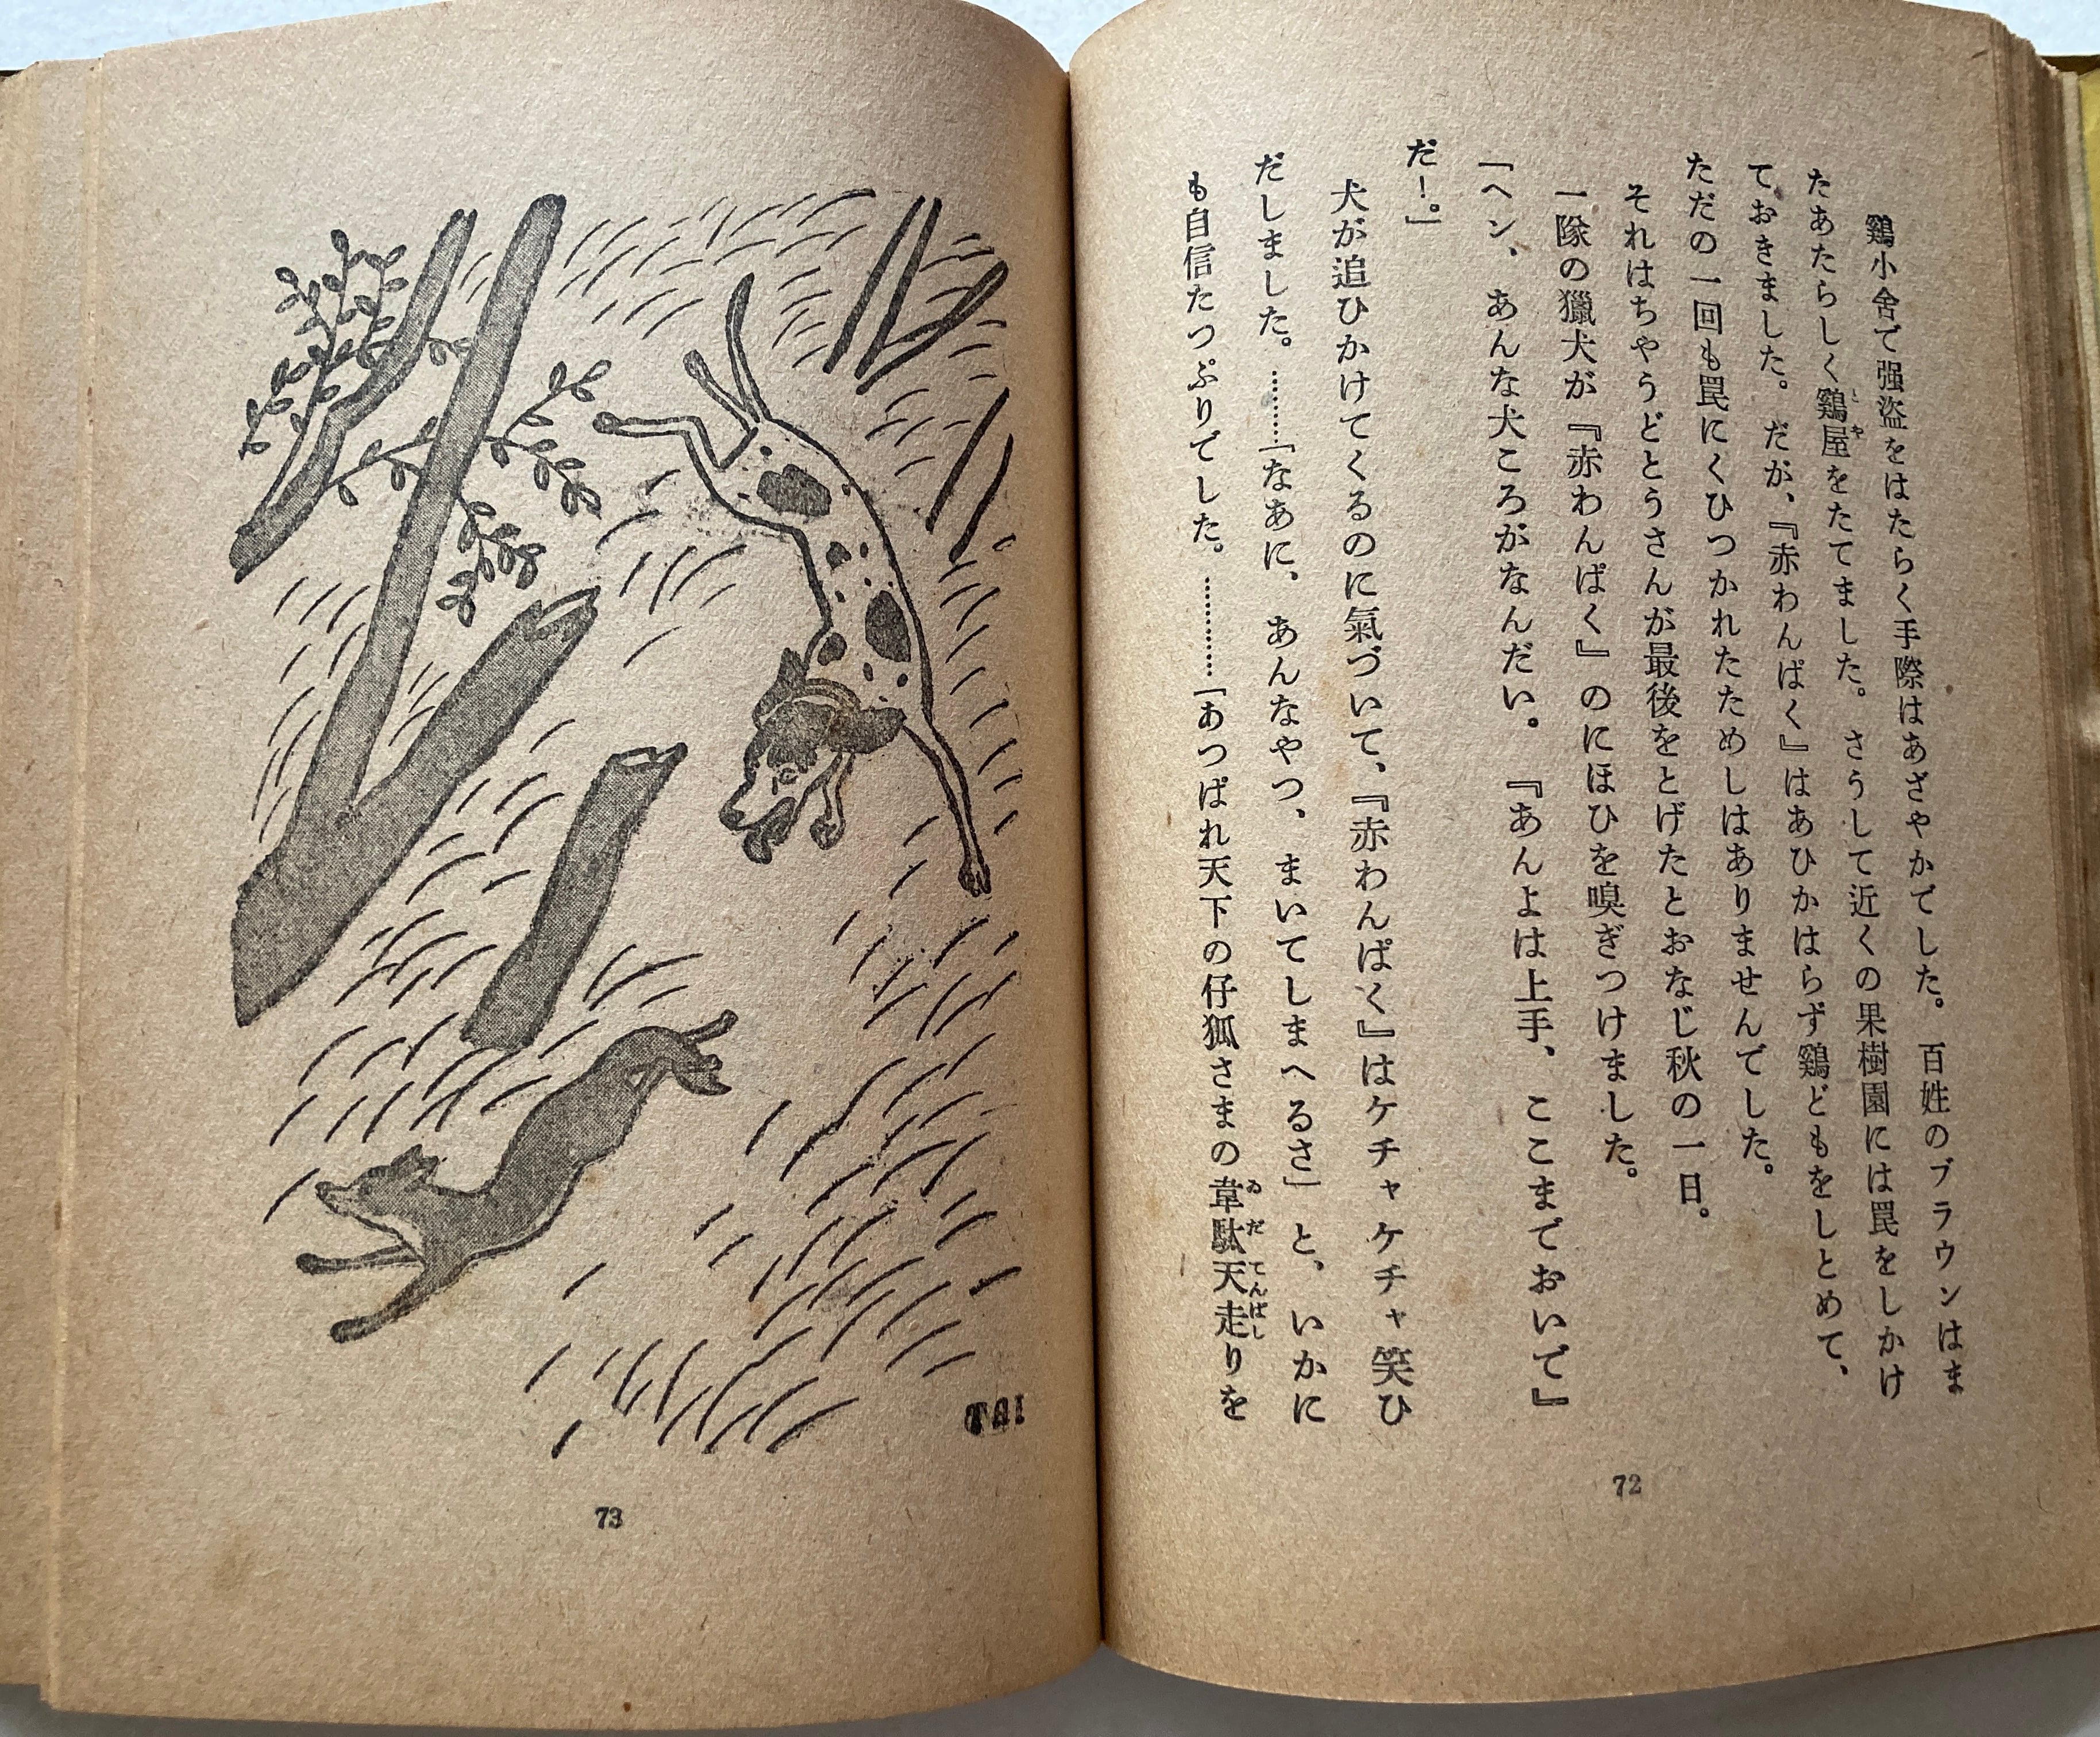 鷄小舍で强盜をはたらく手際はあざやかでした。百姓のブラウンはま
たあたらしく鷄屋をたてました。さうして近くの果樹園には罠をしかけ
とや
ておきました。だが、『赤わんぱく』はあひかはらず鷄どもをしとめて、
ただの一回も罠にくひつかれたためしはありませんでした。
それはちやうどとうさんが最後をとげたとおなじ秋の一日。
一隊の獵犬が『赤わんぱく』のにほひを嗅ぎつけました。
「ヘン、あんな犬ころがなんだい。『あんよは上手、ここまでおいで』
だ！。」
犬が追ひかけてくるのに氣づいて、『赤わんぱく』はケチャケチャ笑ひ
だしました。………「なあに、あんなやつ、まいてしまへるさ」と、いかに
も自信たつぷりでした。…………「あつぱれ天下の仔狐さまの韋駄天走りを
ゐだてんばし
72
TAI
73